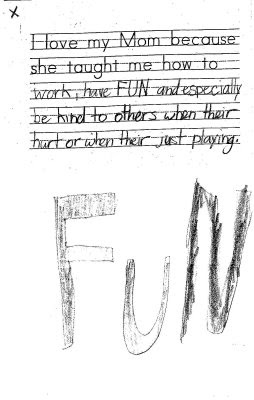 X
I love my Mom because
she taught me how to
work, have FUN and especially
be kind to others when their
hurt or when their just playing.
FUN